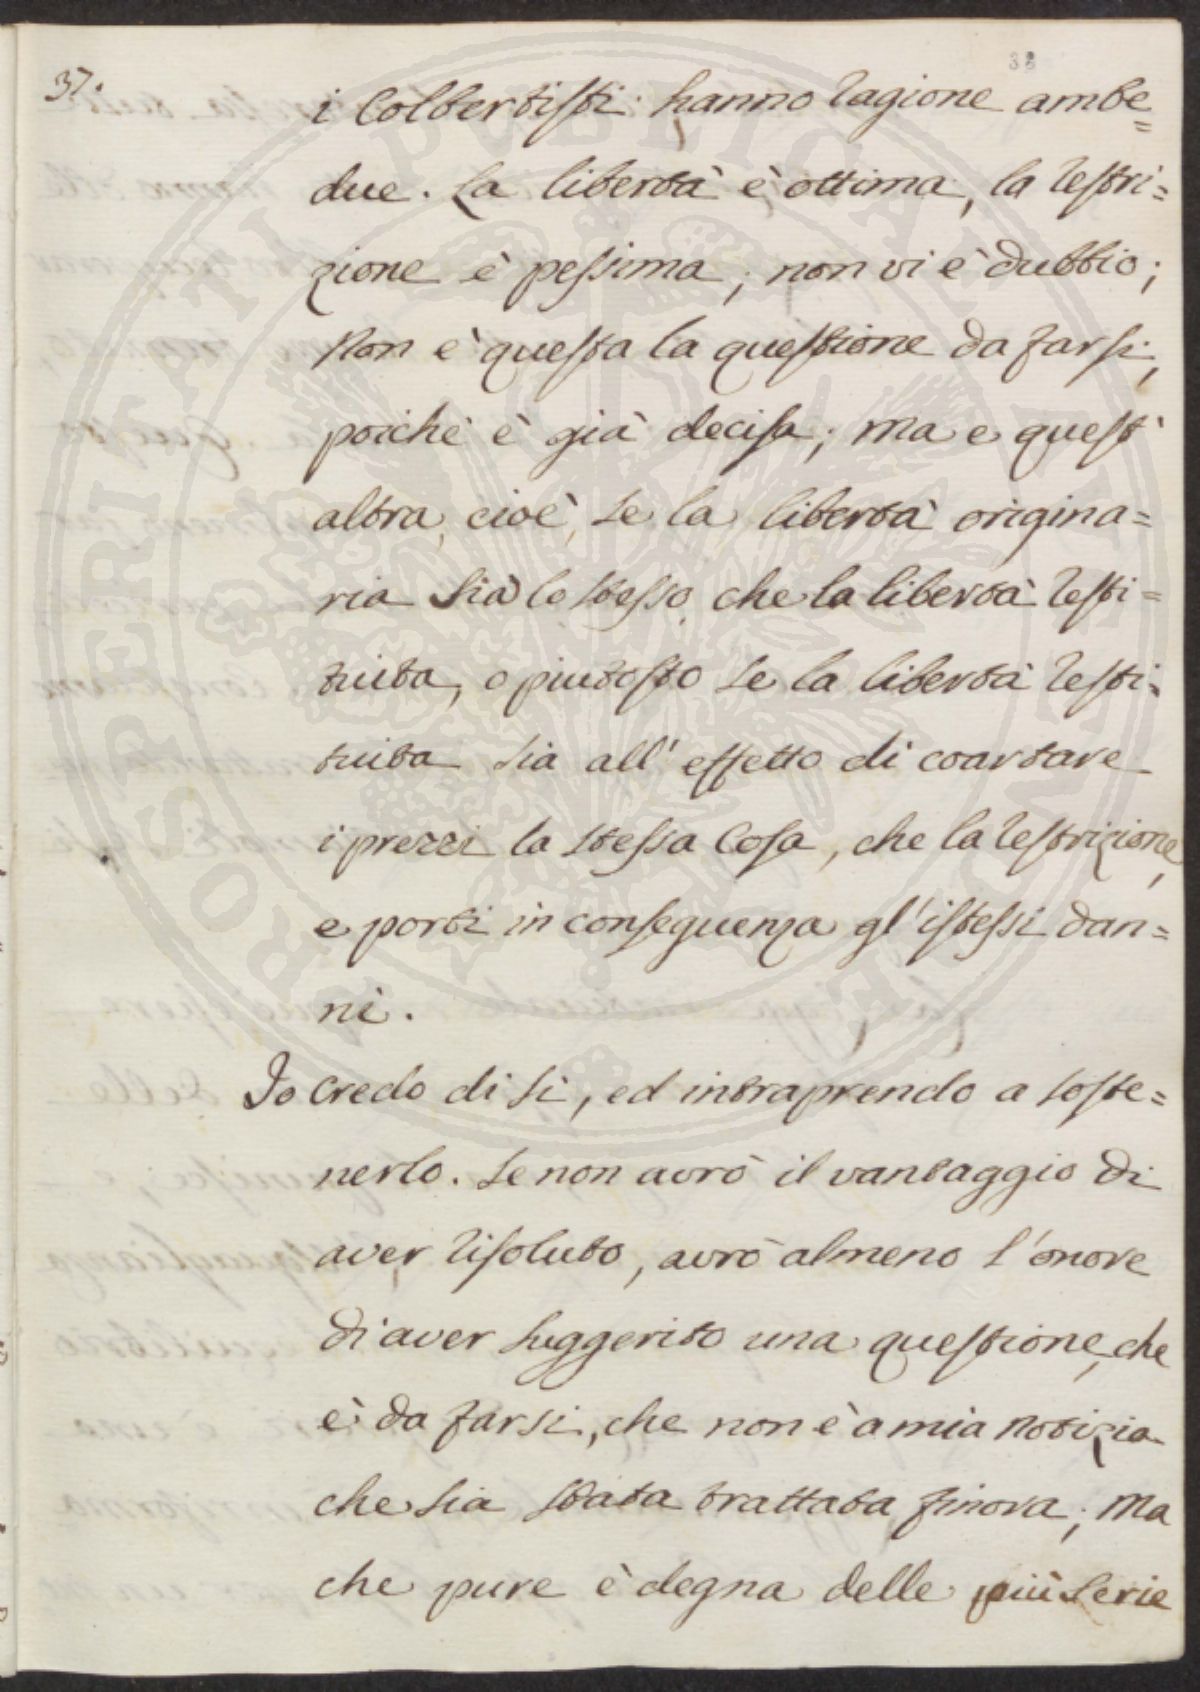 38
37.
i Colbertisti hanno ragione ambe=
due. La libertà è ottima, la restri=
zione è pessima; non vi è dubbio;
Non è questa la questione da farsi,
poichè è già decisa; ma e quest'
altra, cioè, se la libertà origina=
ria sia lo stesso che la libertà resti=
tuita, o piutosto se la libertà resti=
tuita sia all' effetto di coartare
i prezzi la stessa Cosa, che la restrizione,
e porti in conseguenza gl'istessi dan=
ni.
Io credo di si, ed intraprendo a soste=
nerlo. Se non avrò il vantaggio di
aver risoluto, avrò almeno l'onore
di aver suggerito una questione, che
è da farsi, che non è a mia notizia
che sia stata trattata finora; Ma
che pure è degna delle più serie
PROSPERITATI PUBLICAE AUGENDAE